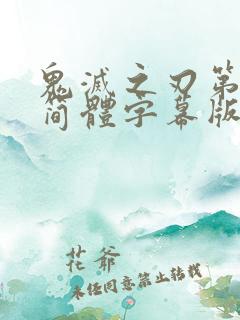 鬼滅之刃第
简體字幕版
花爺
未经同意禁止转载